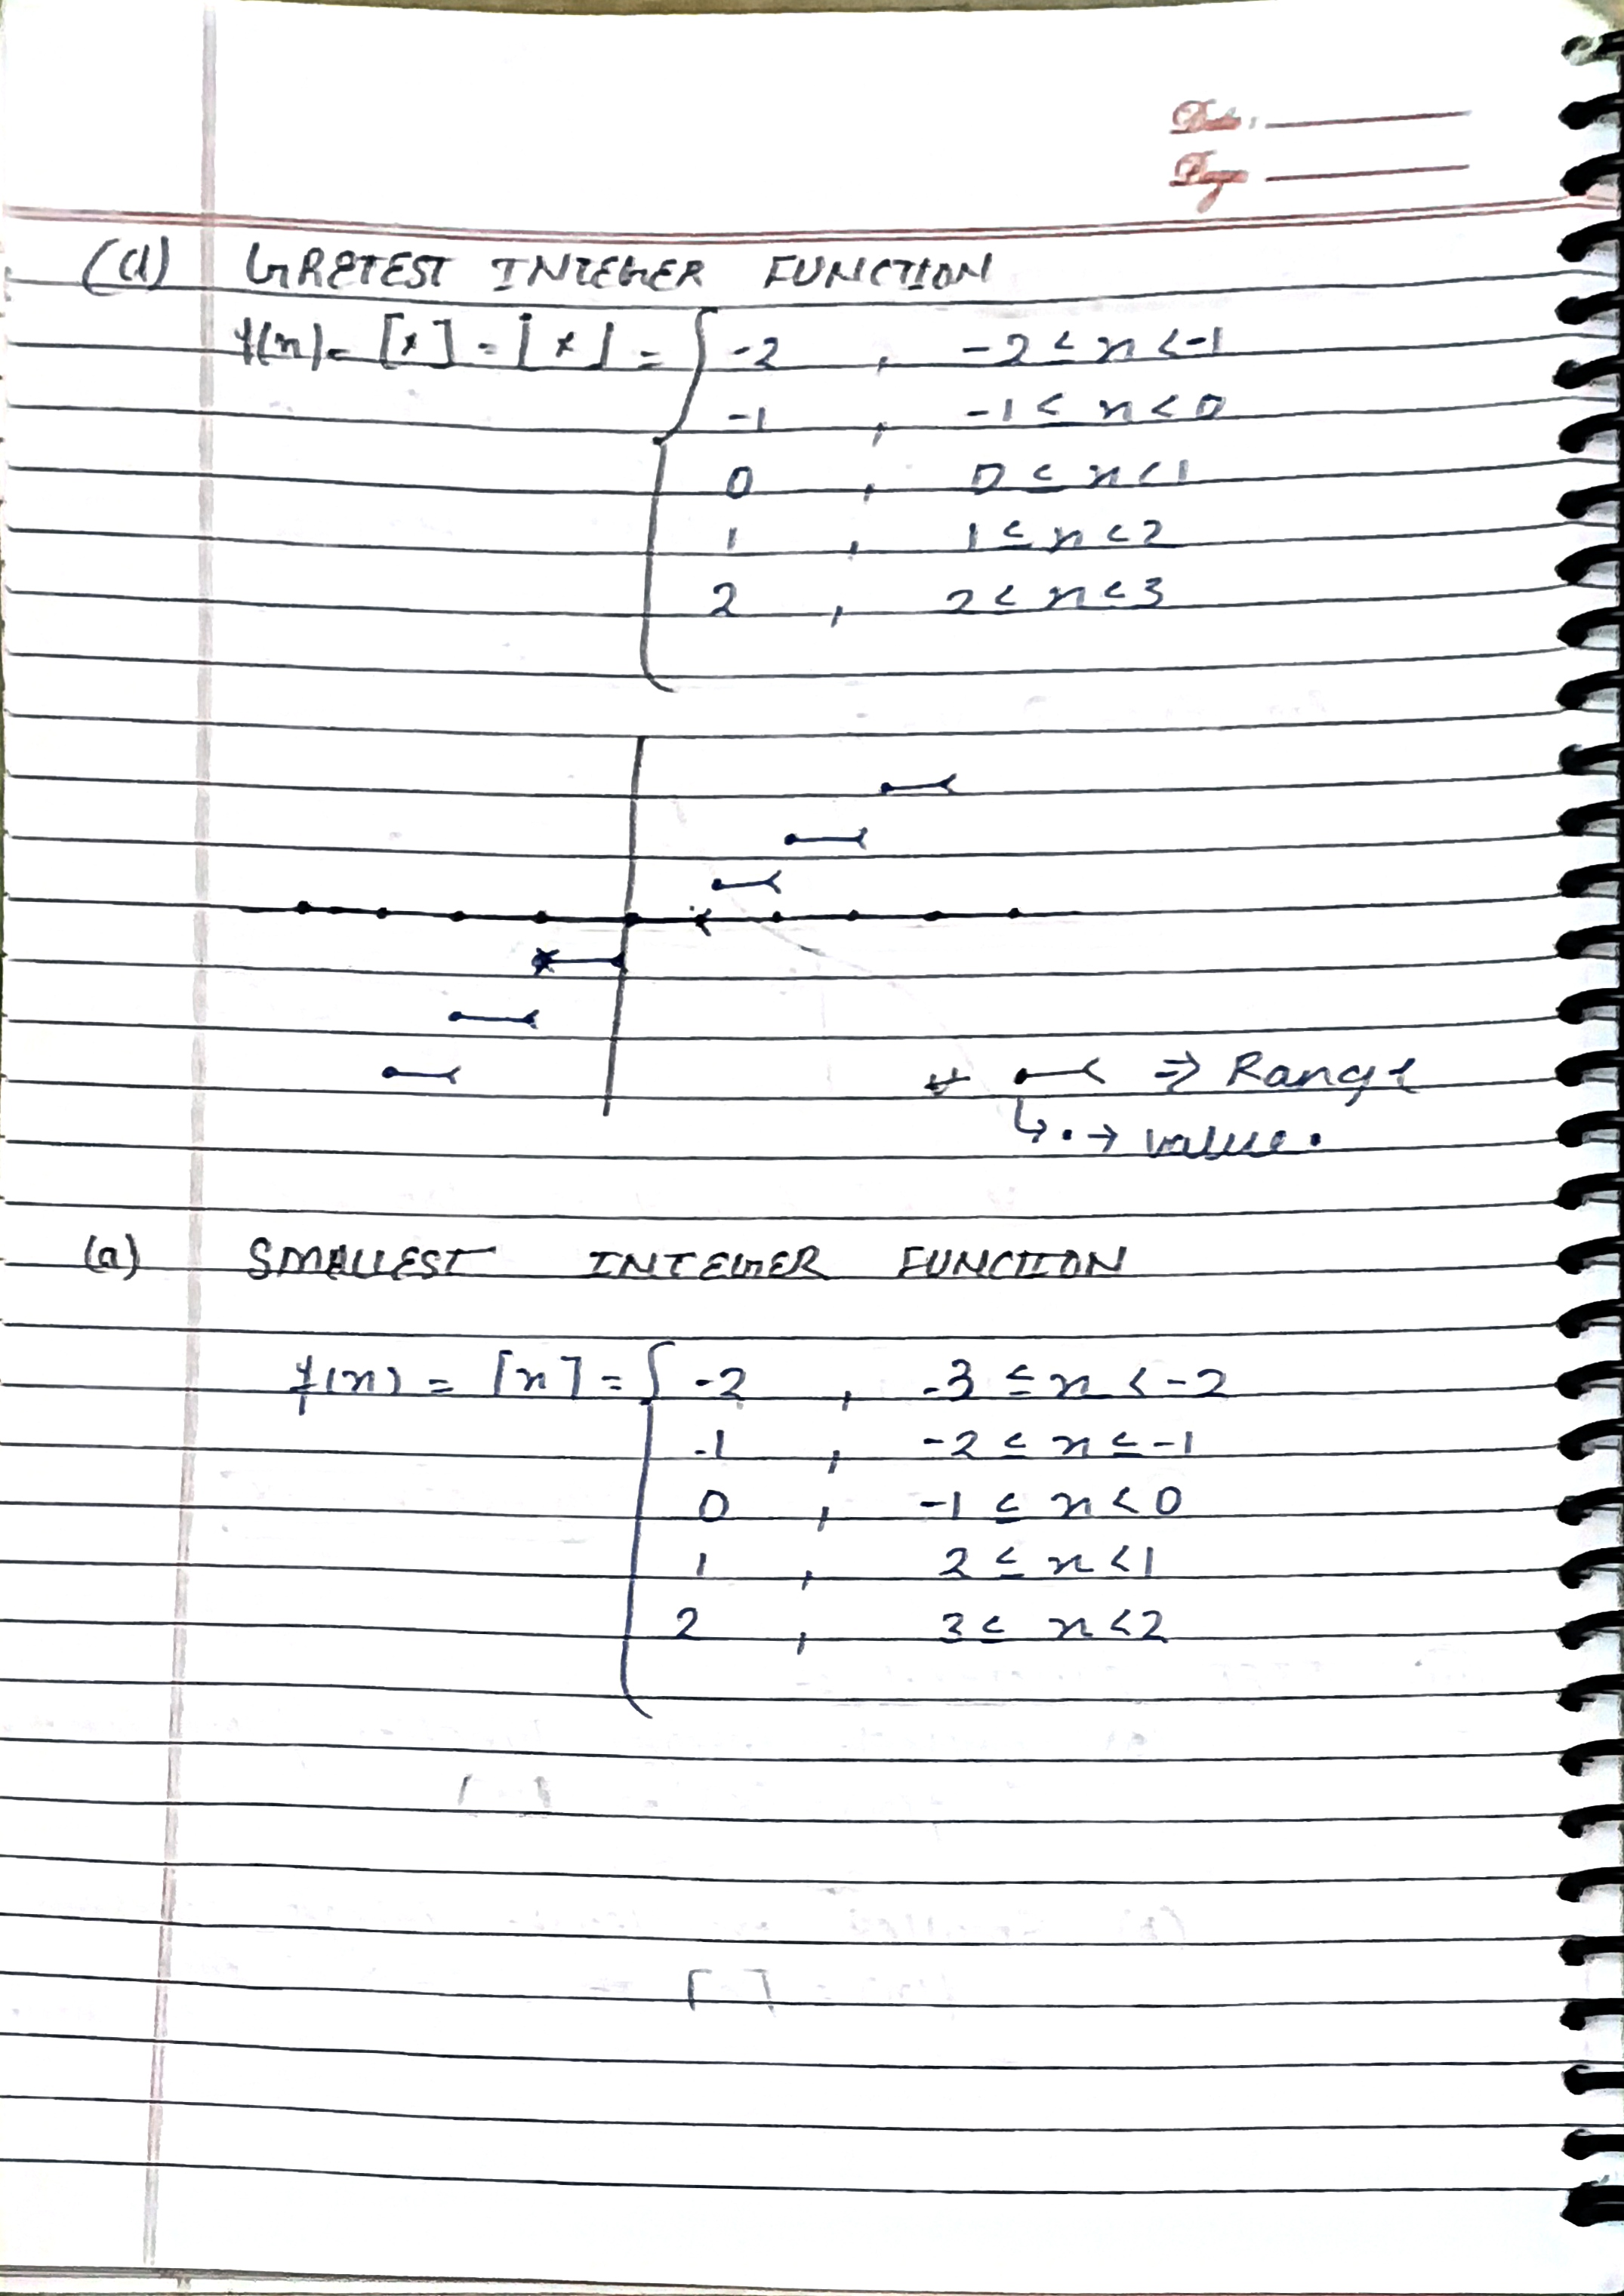 Date:
Page
(d) GRETEST INTEGER FUNCTION
f(n) = [x] = ⌊x⌋ = { -2 , -2 ≤ n < -1
-1 , -1 ≤ n < 0
0 , 0 ≤ n < 1
1 , 1 ≤ n < 2
2 , 2 ≤ n < 3
⇒ Range
↳ • → value.
(a) SMALLEST INTEGER FUNCTION
f(n) = ⌈n⌉ = { -2 , -3 ≤ n < -2
-1 , -2 ≤ n ≤ -1
0 , -1 ≤ n < 0
1 , 2 ≤ n < 1
2 , 3 ≤ n < 2
⌈ ⌉